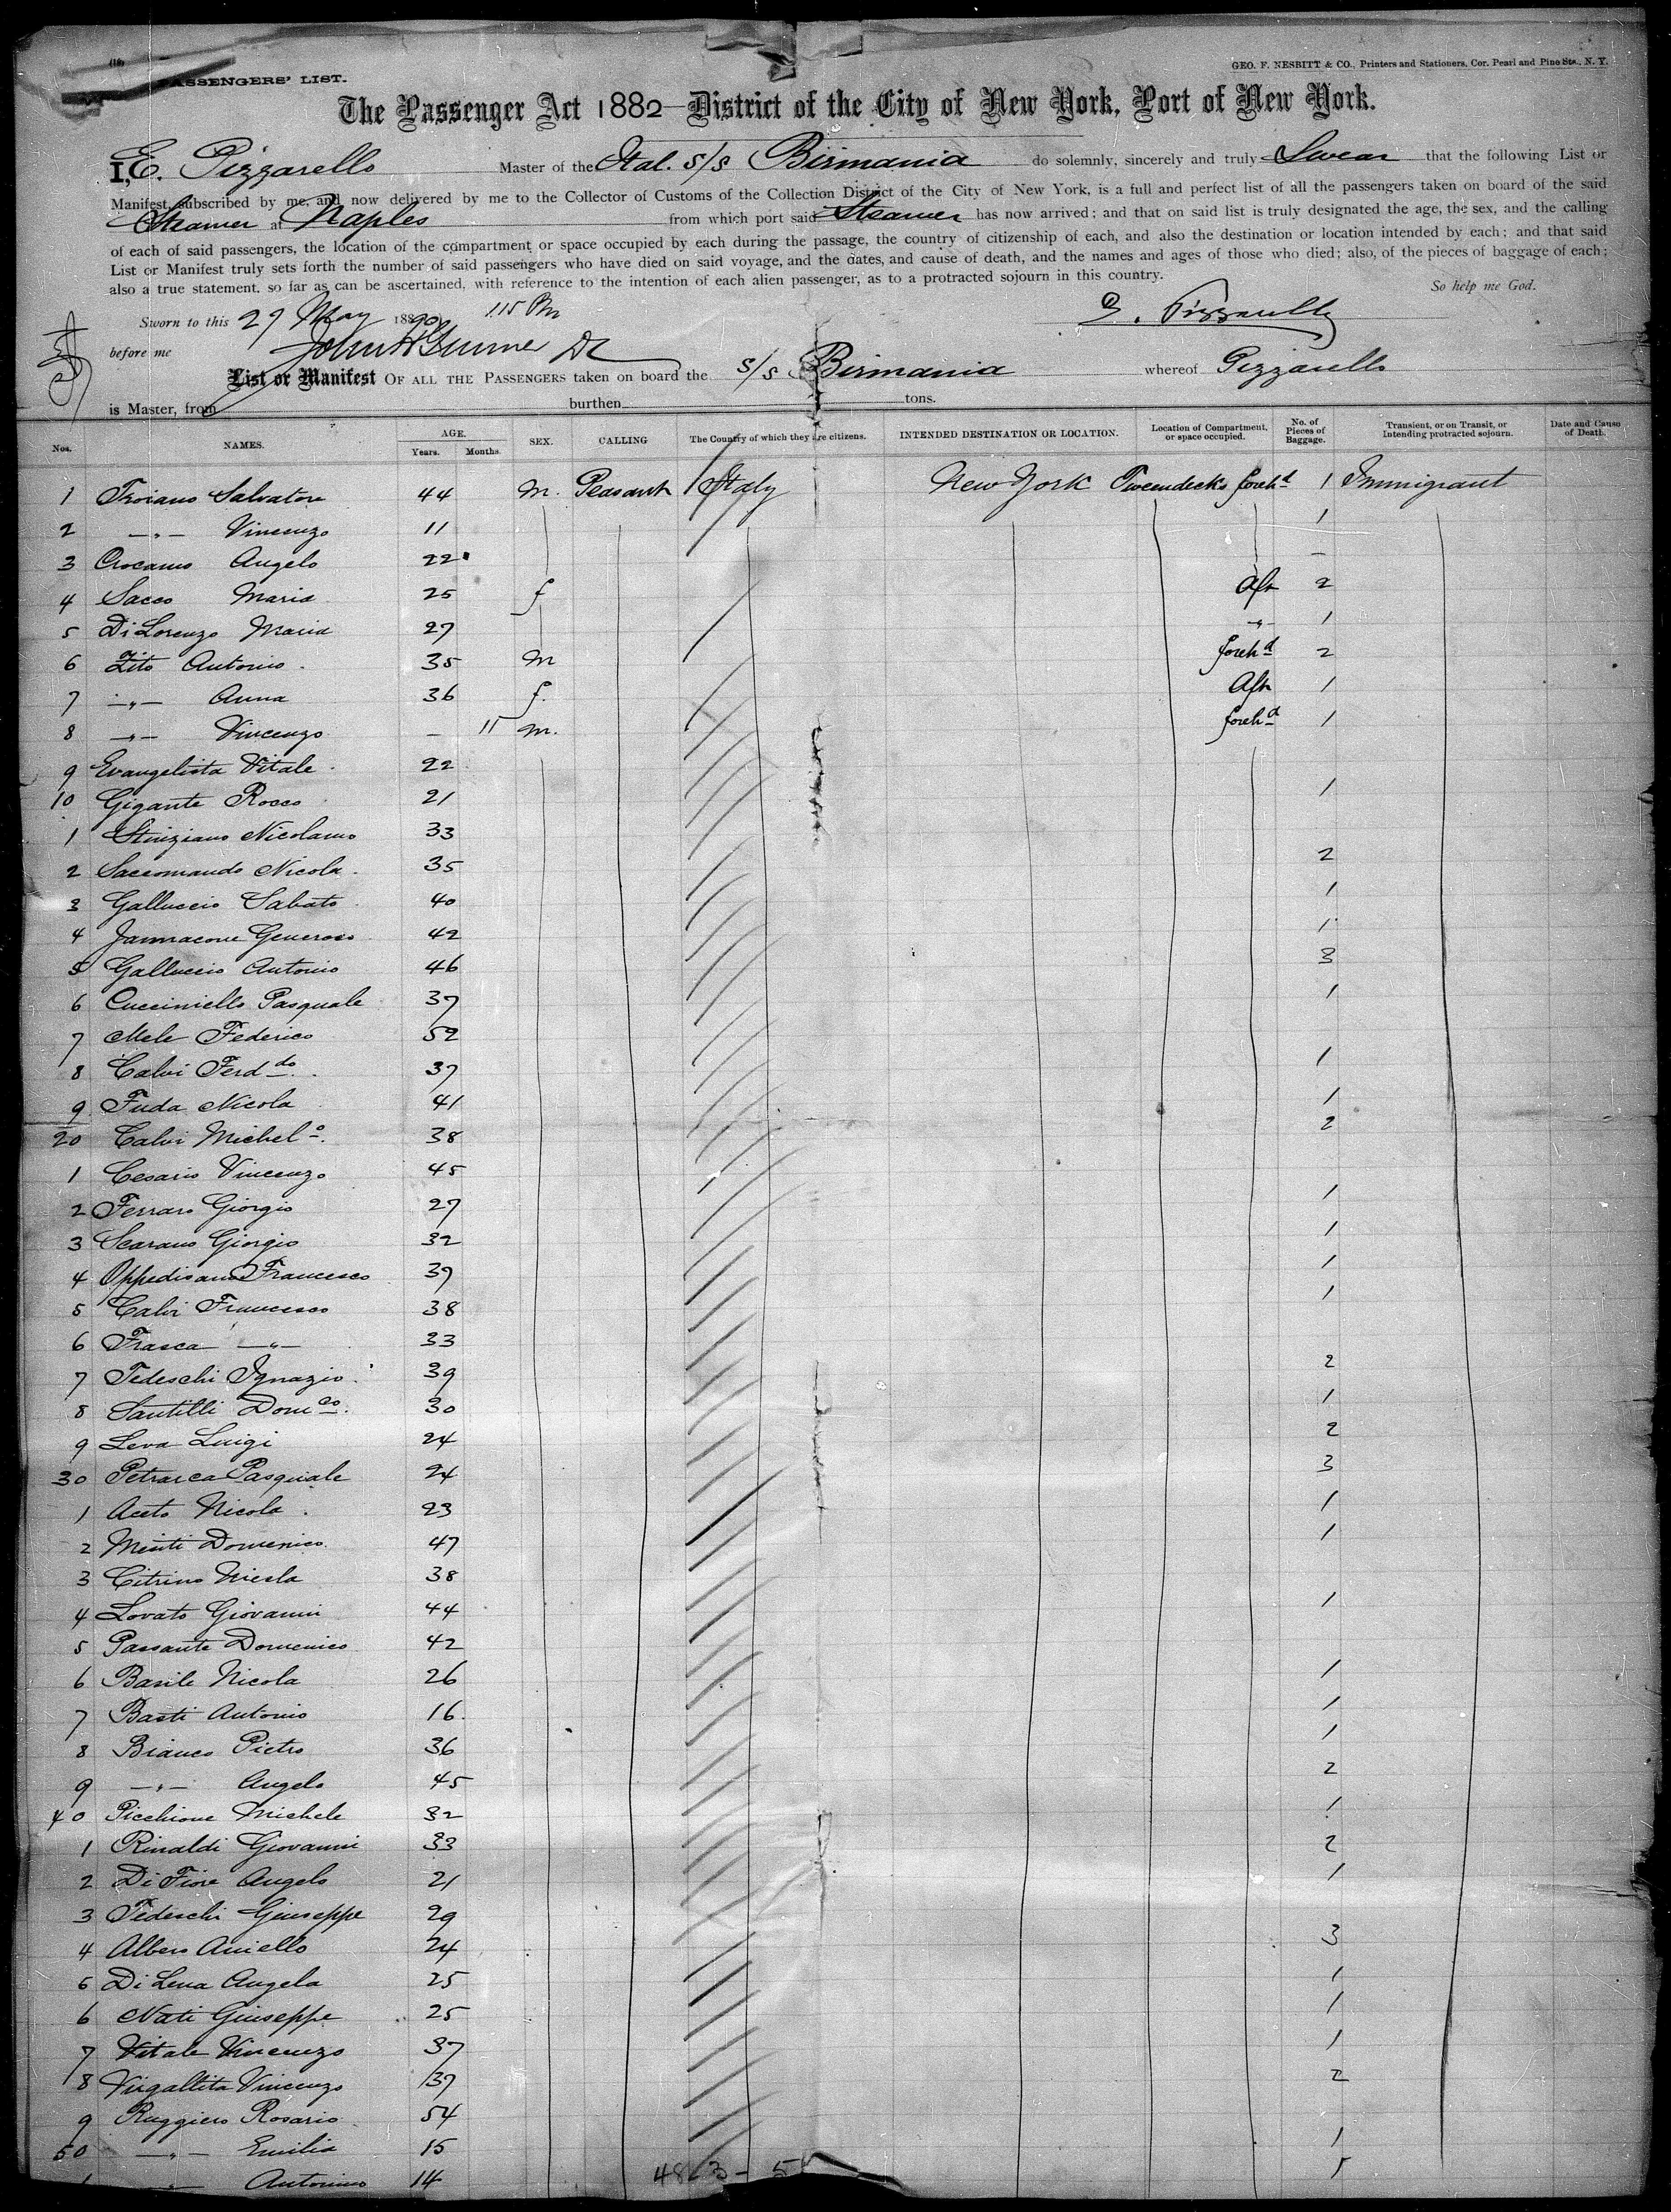 (16)
PASSENGERS' LIST.
GEO. F. NESBITT & CO., Printers and Stationers, Cor. Pearl and Pine Sts., N. Y.
The Passenger Act 1882—District of the City of New York, Port of New York.
I, E. Pizzarello Master of the Ital. S/S Birmania do solemnly, sincerely and truly Swear that the following List or
Manifest, subscribed by me, and now delivered by me to the Collector of Customs of the Collection District of the City of New York, is a full and perfect list of all the passengers taken on board of the said
Steamer at Naples from which port said Steamer has now arrived; and that on said list is truly designated the age, the sex, and the calling
of each of said passengers, the location of the compartment or space occupied by each during the passage, the country of citizenship of each, and also the destination or location intended by each; and that said
List or Manifest truly sets forth the number of said passengers who have died on said voyage, and the dates, and cause of death, and the names and ages of those who died; also, of the pieces of baggage of each;
also a true statement, so far as can be ascertained, with reference to the intention of each alien passenger, as to a protracted sojourn in this country. So help me God.
Sworn to this 29 May 1890 1.15 Pm
before me
List or Manifest OF ALL THE PASSENGERS taken on board the S/S Birmania whereof Pizzarello
is Master, from burthen tons.
Nos. NAMES. AGE. Years. Months. SEX. CALLING The Country of which they are citizens. INTENDED DESTINATION OR LOCATION. Location of Compartment, or space occupied. No. of Pieces of Baggage. Transient, or on Transit, or Intending protracted sojourn. Date and Cause of Death.
1 Troiano Salvatore 44 m. Peasant Italy New York Tweendecks foreh.d 1 Immigrant
2 —"— Vincenzo 11 1
3 Crocamo Angelo 22 –
4 Sacco Maria 25 f Aft 2
5 Di Lorenzo Maria 27 —"— 1
6 Zito Antonio 35 m foreh.d 2
7 —"— Anna 36 f. Aft 1
8 —"— Vincenzo – 11 m. foreh.d 1
9 Evangelista Vitale 22
10 Gigante Rocco 21 1
1 Nicolamo 33
2 Saccomando Nicola 35 2
3 Galluccio Sabato 40 1
4 Jannacone Generoso 42 1
5 Galluccio Antonio 46 3
6 Cucciniello Pasquale 37 1
7 Mele Federico 52
8 Calvi Ferd.do 37 1
9 Fuda Nicola 41 1
20 Calvi Michel.e 38 2
1 Cesario Vincenzo 45
2 Ferraro Giorgio 27 1
3 Scarano Giorgio 32 1
4 Oppedisano Francesco 39 1
5 Calvi Francesco 38 1
6 Frasca —"— 33
7 Tedeschi Ignazio 39 2
8 Santilli Dom.co 30 1
9 Leva Luigi 24 2
30 Petrarca Pasquale 24 3
1 Aceto Nicola 23 1
2 Domenico 47 1
3 Citrino Nicola 38
4 Lovato Giovanni 44 1
5 Passante Domenico 42
6 Basile Nicola 26 1
7 Basti Antonio 16 1
8 Bianco Pietro 36 1
9 —"— Angelo 45 2
40 Picchione Michele 32 1
1 Rinaldi Giovanni 33 2
2 Di Fiore Angelo 21 1
3 Tedeschi Giuseppe 29
4 Albero Aniello 24 3
5 Di Lena Angela 25 1
6 Nati Giuseppe 25 1
7 Vitale Vincenzo 37 1
8 Vincenzo 37 2
9 Ruggiero Rosario 54
50 —"— Emilia 15 1
1 —"— Antonino 14 1